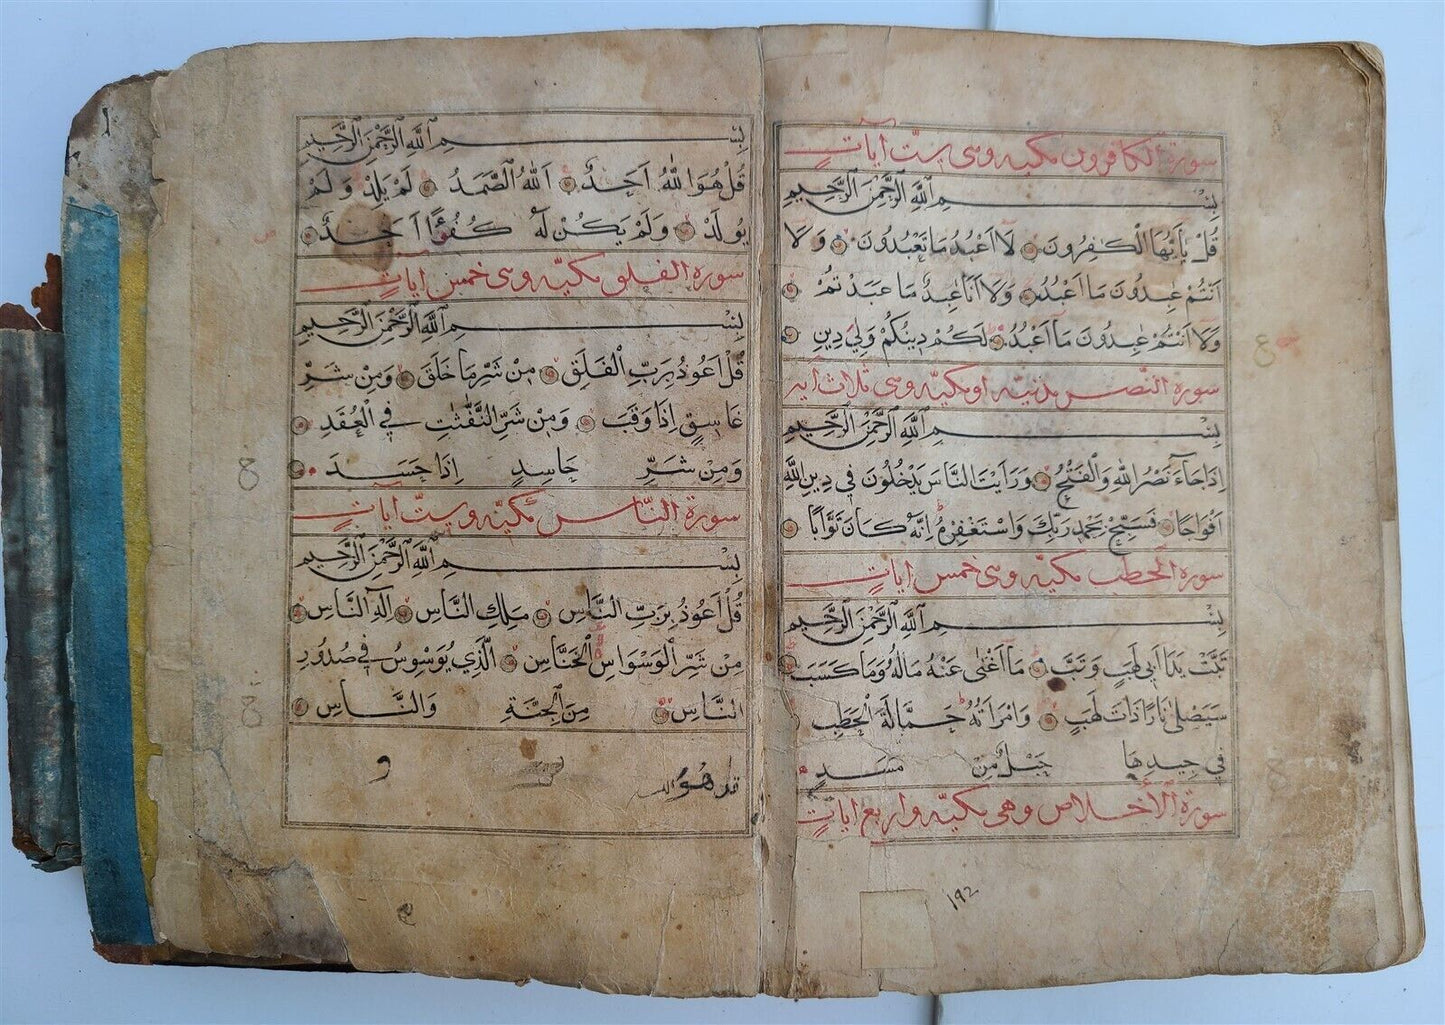 سورة الكافرون مكيه وهى ست آيات
بِسْمِ ٱللَّهِ ٱلرَّحْمٰنِ ٱلرَّحِيمِ
قُلْ يٰأَيُّهَا الْكٰفِرُونَ لَا اَعْبُدُ مَا تَعْبُدُونَ وَلَا
اَنْتُمْ عٰبِدُونَ مَا اَعْبُدُ وَلَا اَنَا عٰبِدٌ مَا عَبَدْتُمْ
وَلَا اَنْتُمْ عٰبِدُونَ مَا اَعْبُدُ لَكُمْ دِينُكُمْ وَلِيَ دِينِ
سورة النصر مدنيه او مكيه وهى ثلاث ايه
بِسْمِ ٱللَّهِ ٱلرَّحْمٰنِ ٱلرَّحِيمِ
اِذَا جَاءَ نَصْرُ اللّٰهِ وَالْفَتْحُ وَرَاَيْتَ النَّاسَ يَدْخُلُونَ فِي دِينِ اللّٰهِ
اَفْوَاجًا فَسَبِّحْ بِحَمْدِ رَبِّكَ وَاسْتَغْفِرْهُ اِنَّهُ كَانَ تَوَّابًا
سورة الحطب مكيه وهى خمس ايات
بِسْمِ ٱللَّهِ ٱلرَّحْمٰنِ ٱلرَّحِيمِ
تَبَّتْ يَدَا اَبِي لَهَبٍ وَتَبَّ مَا اَغْنٰى عَنْهُ مَالُهُ وَمَا كَسَبَ
سَيَصْلٰى نَارًا ذَاتَ لَهَبٍ وَامْرَاَتُهُ حَمَّالَةَ الْحَطَبِ
فِي جِيدِهَا حَبْلٌ مِنْ مَسَدٍ
سورة الأخلاص وهى مكيه واربع ايات
١٩٢
بِسْمِ ٱللَّهِ ٱلرَّحْمٰنِ ٱلرَّحِيمِ
قُلْ هُوَ اللّٰهُ اَحَدٌ اَللّٰهُ الصَّمَدُ لَمْ يَلِدْ وَلَمْ
يُولَدْ وَلَمْ يَكُنْ لَهُ كُفُؤًا اَحَدٌ
سورة الفلق مكيه وهى خمس آيات
بِسْمِ ٱللَّهِ ٱلرَّحْمٰنِ ٱلرَّحِيمِ
قُلْ اَعُوذُ بِرَبِّ الْفَلَقِ مِنْ شَرِّ مَا خَلَقَ وَمِنْ شَرِّ
غَاسِقٍ اِذَا وَقَبَ وَمِنْ شَرِّ النَّفّٰثٰتِ فِي الْعُقَدِ
وَمِنْ شَرِّ حَاسِدٍ اِذَا حَسَدَ
سورة الناس مكيه وست آيات
بِسْمِ ٱللَّهِ ٱلرَّحْمٰنِ ٱلرَّحِيمِ
قُلْ اَعُوذُ بِرَبِّ النَّاسِ مَلِكِ النَّاسِ اِلٰهِ النَّاسِ
مِنْ شَرِّ الْوَسْوَاسِ الْخَنَّاسِ الَّذِي يُوَسْوِسُ فِي صُدُورِ
النَّاسِ مِنَ الْجِنَّةِ وَالنَّاسِ
و